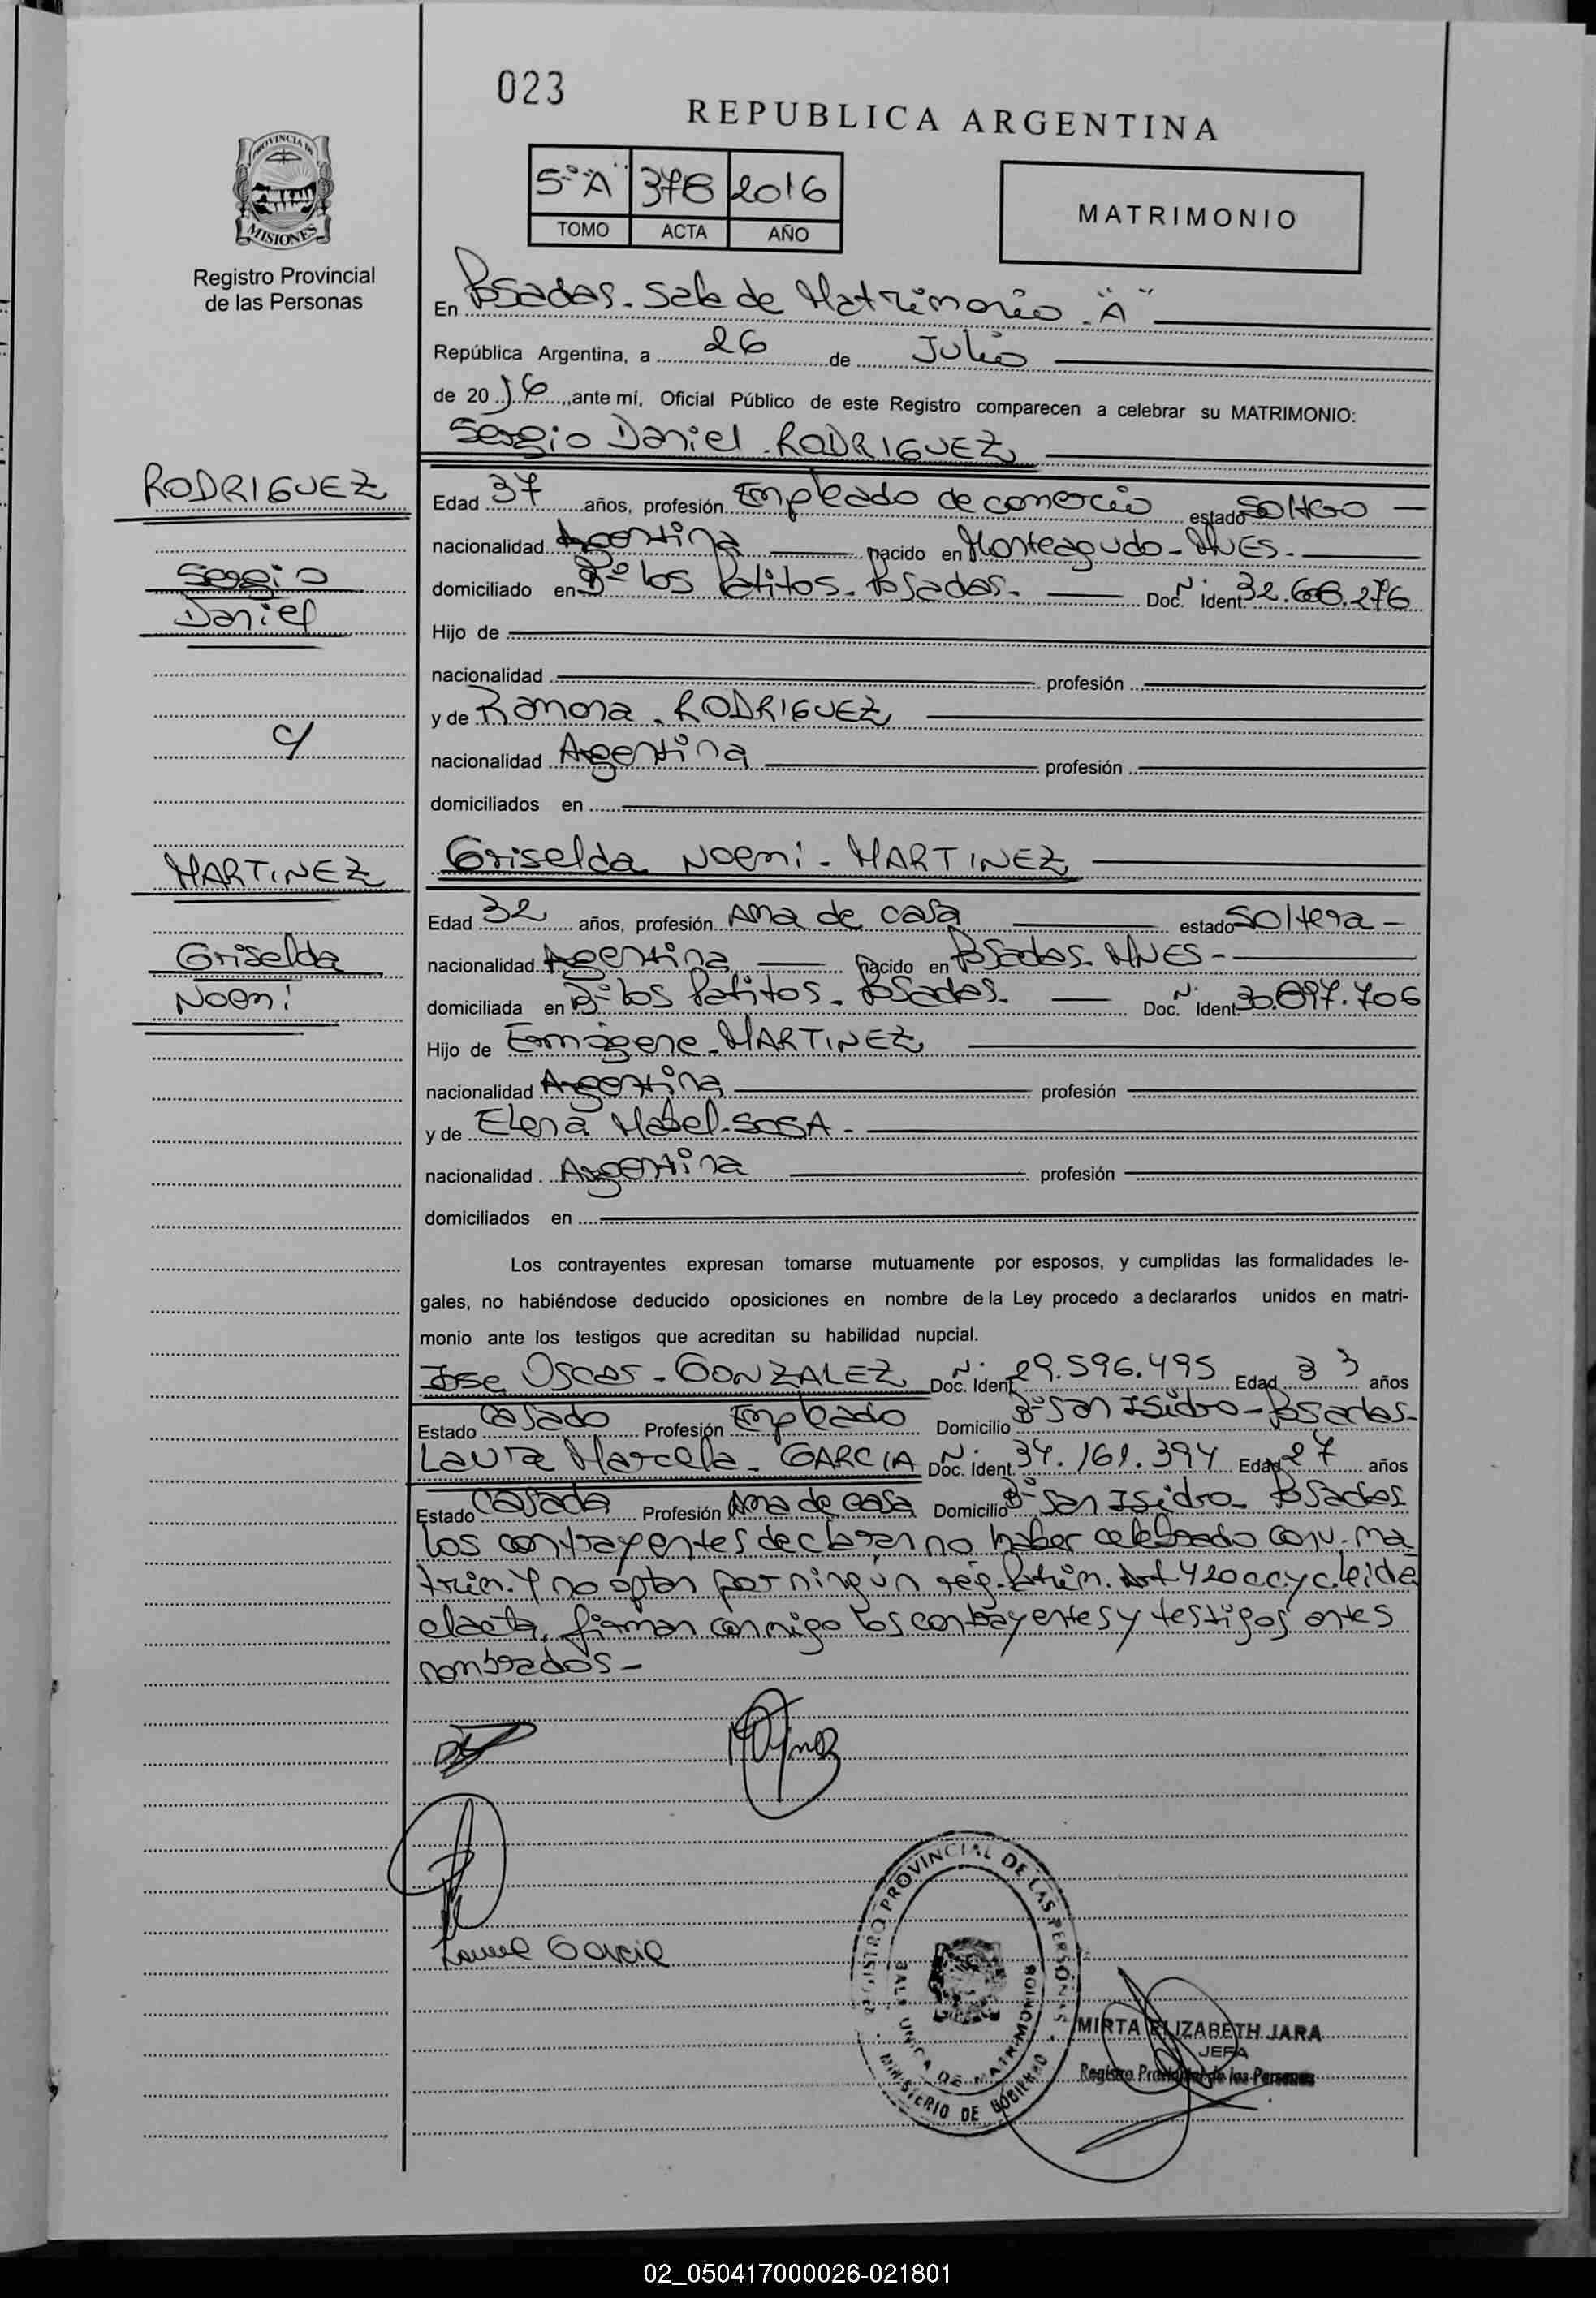 023
REPUBLICA ARGENTINA
PROVINCIA DE
MISIONES
Registro Provincial
de las Personas
5º "A" 378 2016
TOMO ACTA AÑO
MATRIMONIO
En Posadas. Sala de Matrimonio "A"
República Argentina, a 26 de Julio
de 2016, ante mí, Oficial Público de este Registro comparecen a celebrar su MATRIMONIO:
Sergio Daniel RODRIGUEZ
RODRIGUEZ
Sergio
Daniel
Edad 37 años, profesión Empleado de comercio estado Soltero
nacionalidad Argentina nacido en Monteagudo - MNES.
domiciliado en Bº los Patitos. Posadas. Doc. Nº Ident. 32.608.276
Hijo de
nacionalidad profesión
y de Ramona RODRIGUEZ
c/
nacionalidad Argentina profesión
domiciliados en
Griselda Noemi - MARTINEZ
MARTINEZ
Griselda
Noemi
Edad 32 años, profesión Ama de casa estado Soltera -
nacionalidad Argentina nacido en Posadas. MNES -
domiciliada en Bº los Patitos. Posadas. Doc. Nº Ident. 30.897.706
Hijo de Ermógene - MARTINEZ
nacionalidad Argentina profesión
y de Elena Mabel - SOSA -
nacionalidad Argentina profesión
domiciliados en
Los contrayentes expresan tomarse mutuamente por esposos, y cumplidas las formalidades le-
gales, no habiéndose deducido oposiciones en nombre de la Ley procedo a declararlos unidos en matri-
monio ante los testigos que acreditan su habilidad nupcial.
Jose Oscar - GONZALEZ Doc. Nº Ident. 29.596.495 Edad 33 años
Estado Casado Profesión Empleado Domicilio Bº San Isidro - Posadas -
Laura Marcela - GARCIA Doc. Nº Ident. 34.161.394 Edad 27 años
Estado Casada Profesión Ama de casa Domicilio Bº San Isidro - Posadas
los contrayentes declaran no haber celebrado conv. ma
trim. Y no optan por ningún rég. Patrim. Art 420 c.c.y c. leida
el acta, firman conmigo los contrayentes y testigos antes
nombrados -
Laura Garcia
REGISTRO PROVINCIAL DE LAS PERSONAS
SALA UNICA DE MATRIMONIOS
MINISTERIO DE GOBIERNO
MIRTA ELIZABETH JARA
JEFA
Registro Provincial de las Personas
02_050417000026-021801